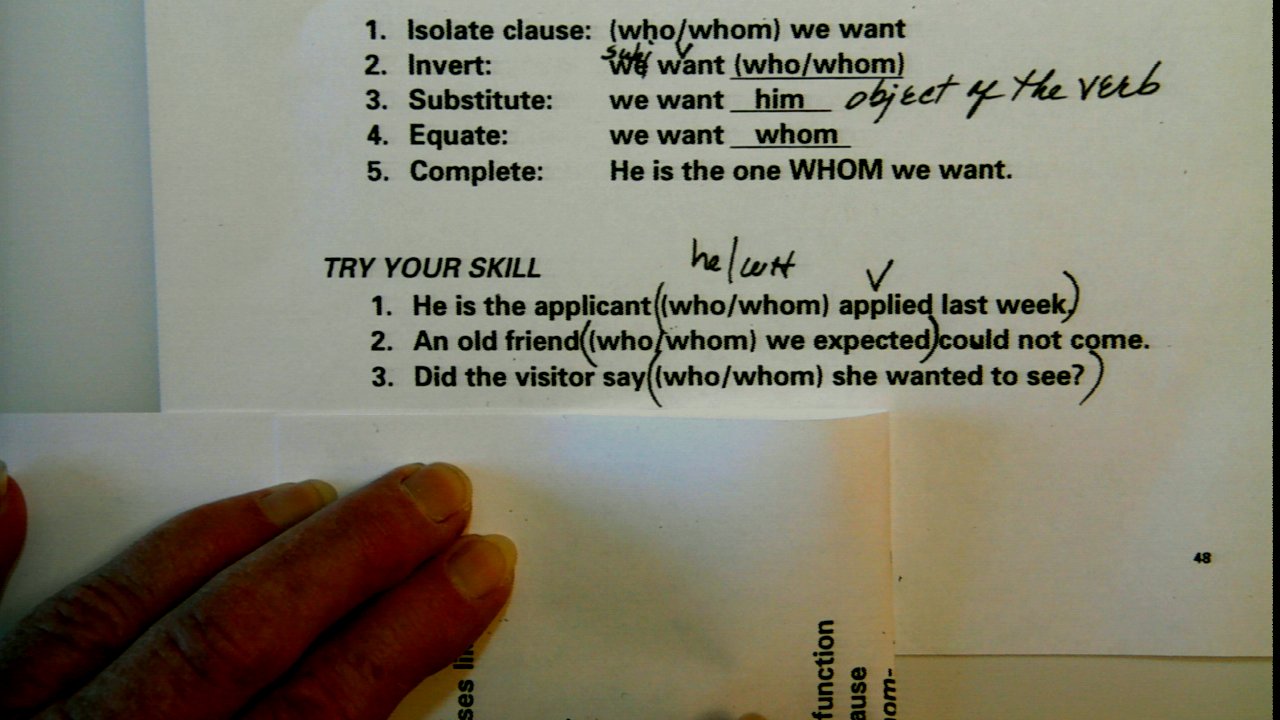 1. Isolate clause: (who/whom) we want
subj v
2. Invert: we want (who/whom)
3. Substitute: we want him object of the verb
4. Equate: we want whom
5. Complete: He is the one WHOM we want.
TRY YOUR SKILL he/
1. He is the applicant ((who/whom) applied last week.)
2. An old friend ((who/whom) we expected) could not come.
3. Did the visitor say ((who/whom) she wanted to see?)
48
function